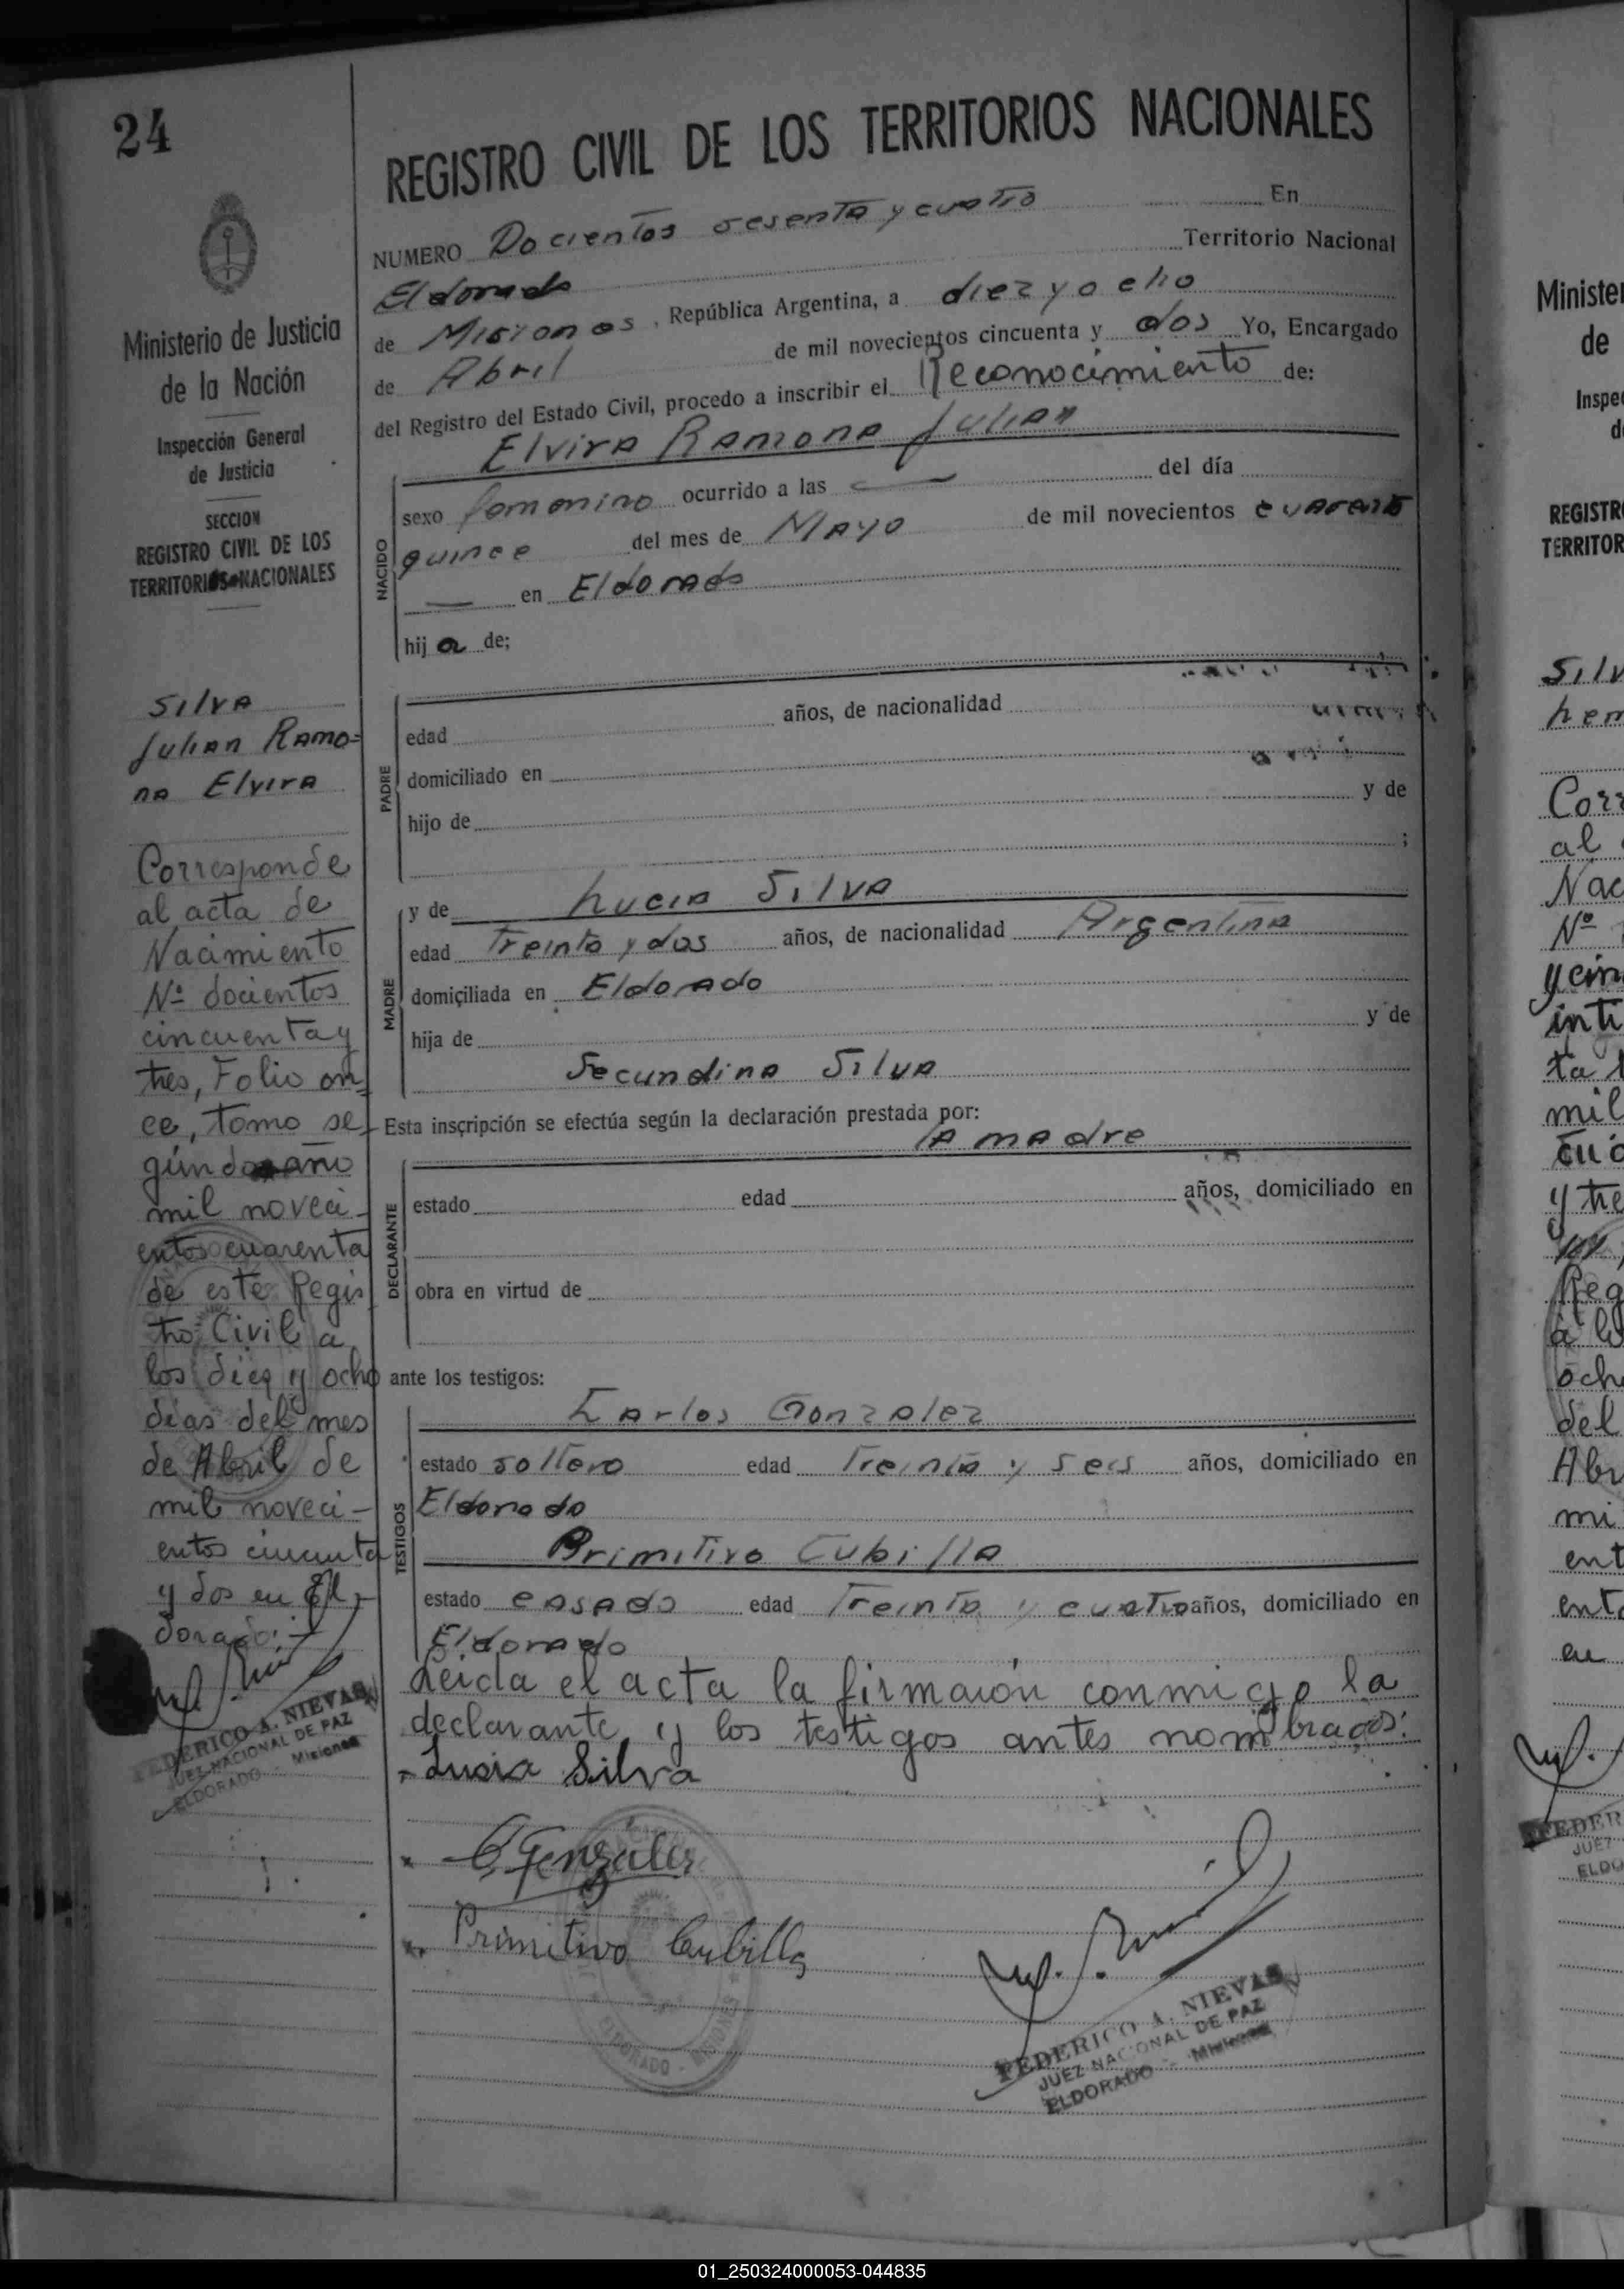 24
Ministerio de Justicia
de la Nación
Inspección General
de Justicia
SECCION
REGISTRO CIVIL DE LOS
TERRITORIOS NACIONALES
SILVA
Julian Ramo=
na Elvira
Corresponde
al acta de
Nacimiento
Nº docientos
cincuenta y
tres, Folio on_
ce, tomo se_
gundo año
mil noveci_
entos cuarenta
de este Regis
tro Civil a
los diez y ocho
dias del mes
de Abril de
mil noveci-
entos cincuenta
y dos en El_
dorado:
FEDERICO A. NIEVAS
JUEZ NACIONAL DE PAZ
ELDORADO - Misiones
REGISTRO CIVIL DE LOS TERRITORIOS NACIONALES
NUMERO Docientos sesenta y cuatro En
Eldorado Territorio Nacional
de Misiones, República Argentina, a diez y ocho
de Abril de mil novecientos cincuenta y dos Yo, Encargado
del Registro del Estado Civil, procedo a inscribir el Reconocimiento de:
Elvira Ramona Julian
NACIDO
sexo femenino ocurrido a las del día
quince del mes de Mayo de mil novecientos cuarenta
en Eldorado
hija de;
PADRE
edad años, de nacionalidad
domiciliado en
hijo de y de
;
MADRE
y de Lucia Silva
edad Treinta y dos años, de nacionalidad Argentina
domiciliada en Eldorado
hija de y de
Secundina Silva
Esta inscripción se efectúa según la declaración prestada por:
la madre
DECLARANTE
estado edad años, domiciliado en
obra en virtud de
ante los testigos:
TESTIGOS
Carlos Gonzalez
estado soltero edad Treinta y seis años, domiciliado en
Eldorado
Primitivo Cubilla
estado casado edad Treinta y cuatro años, domiciliado en
Eldorado
Leida el acta la firmaron conmigo la
declarante y los testigos antes nombrados:
Lusia Silva
C. Gonzalez
Primitivo Cubilla
ELDORADO - MISIONES
FEDERICO A. NIEVAS
JUEZ NACIONAL DE PAZ
ELDORADO - Misiones
Minister
de
Inspe
d
REGISTR
TERRITOR
Silv
her
Corr
al
Nac
Nº
y cin
inti
ta
mil
cua
y tre
Reg
a lo
och
del
Abr
mi
ent
ento
en
FEDER
JUEZ
ELDO
01_250324000053-044835